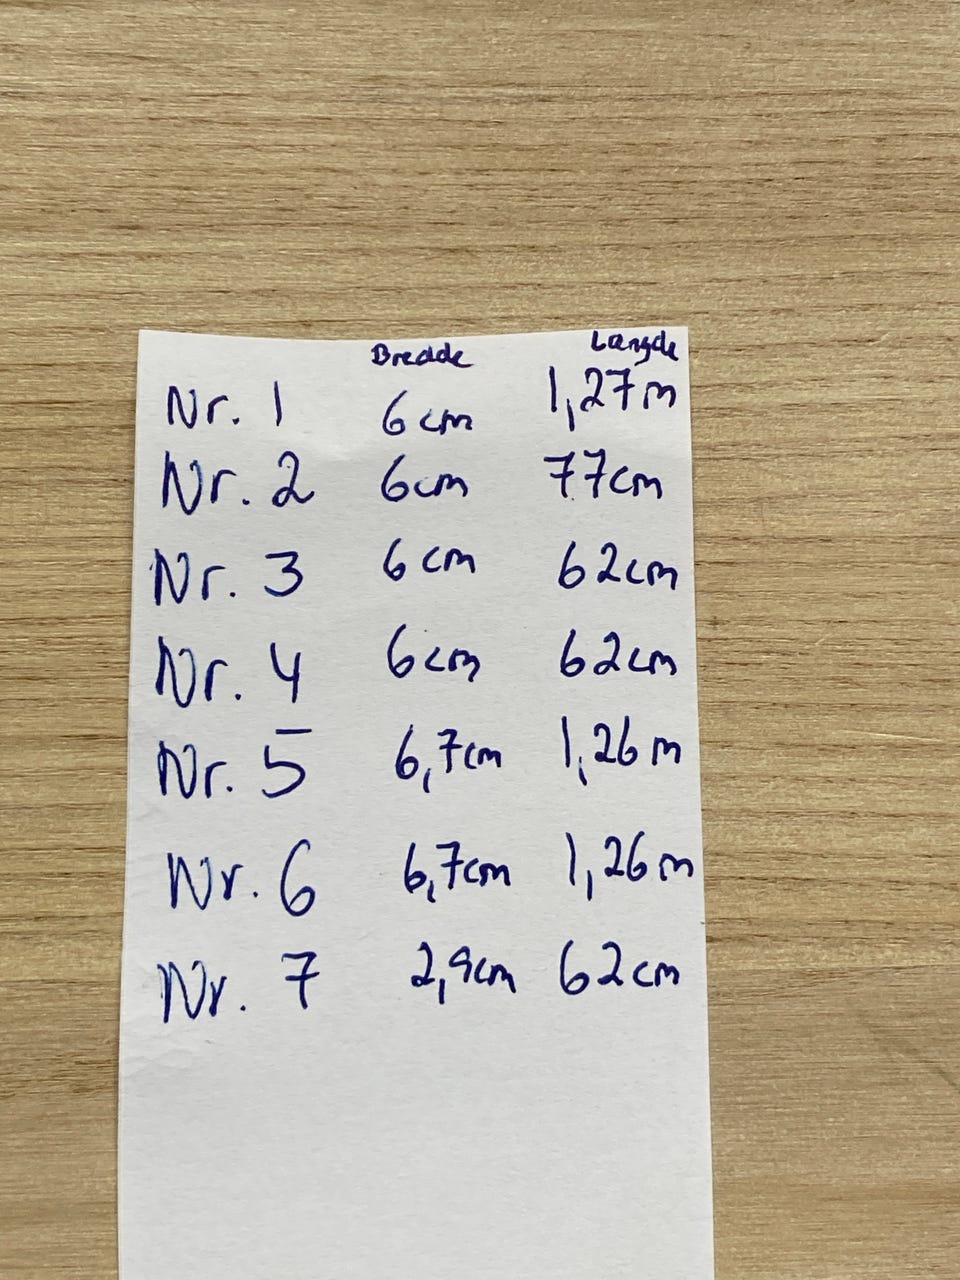 Bredde Længde
Nr. 1 6cm 1,27m
Nr. 2 6cm 77cm
Nr. 3 6cm 62cm
Nr. 4 6cm 62cm
Nr. 5 6,7cm 1,26m
Nr. 6 6,7cm 1,26m
Nr. 7 2,9cm 62cm